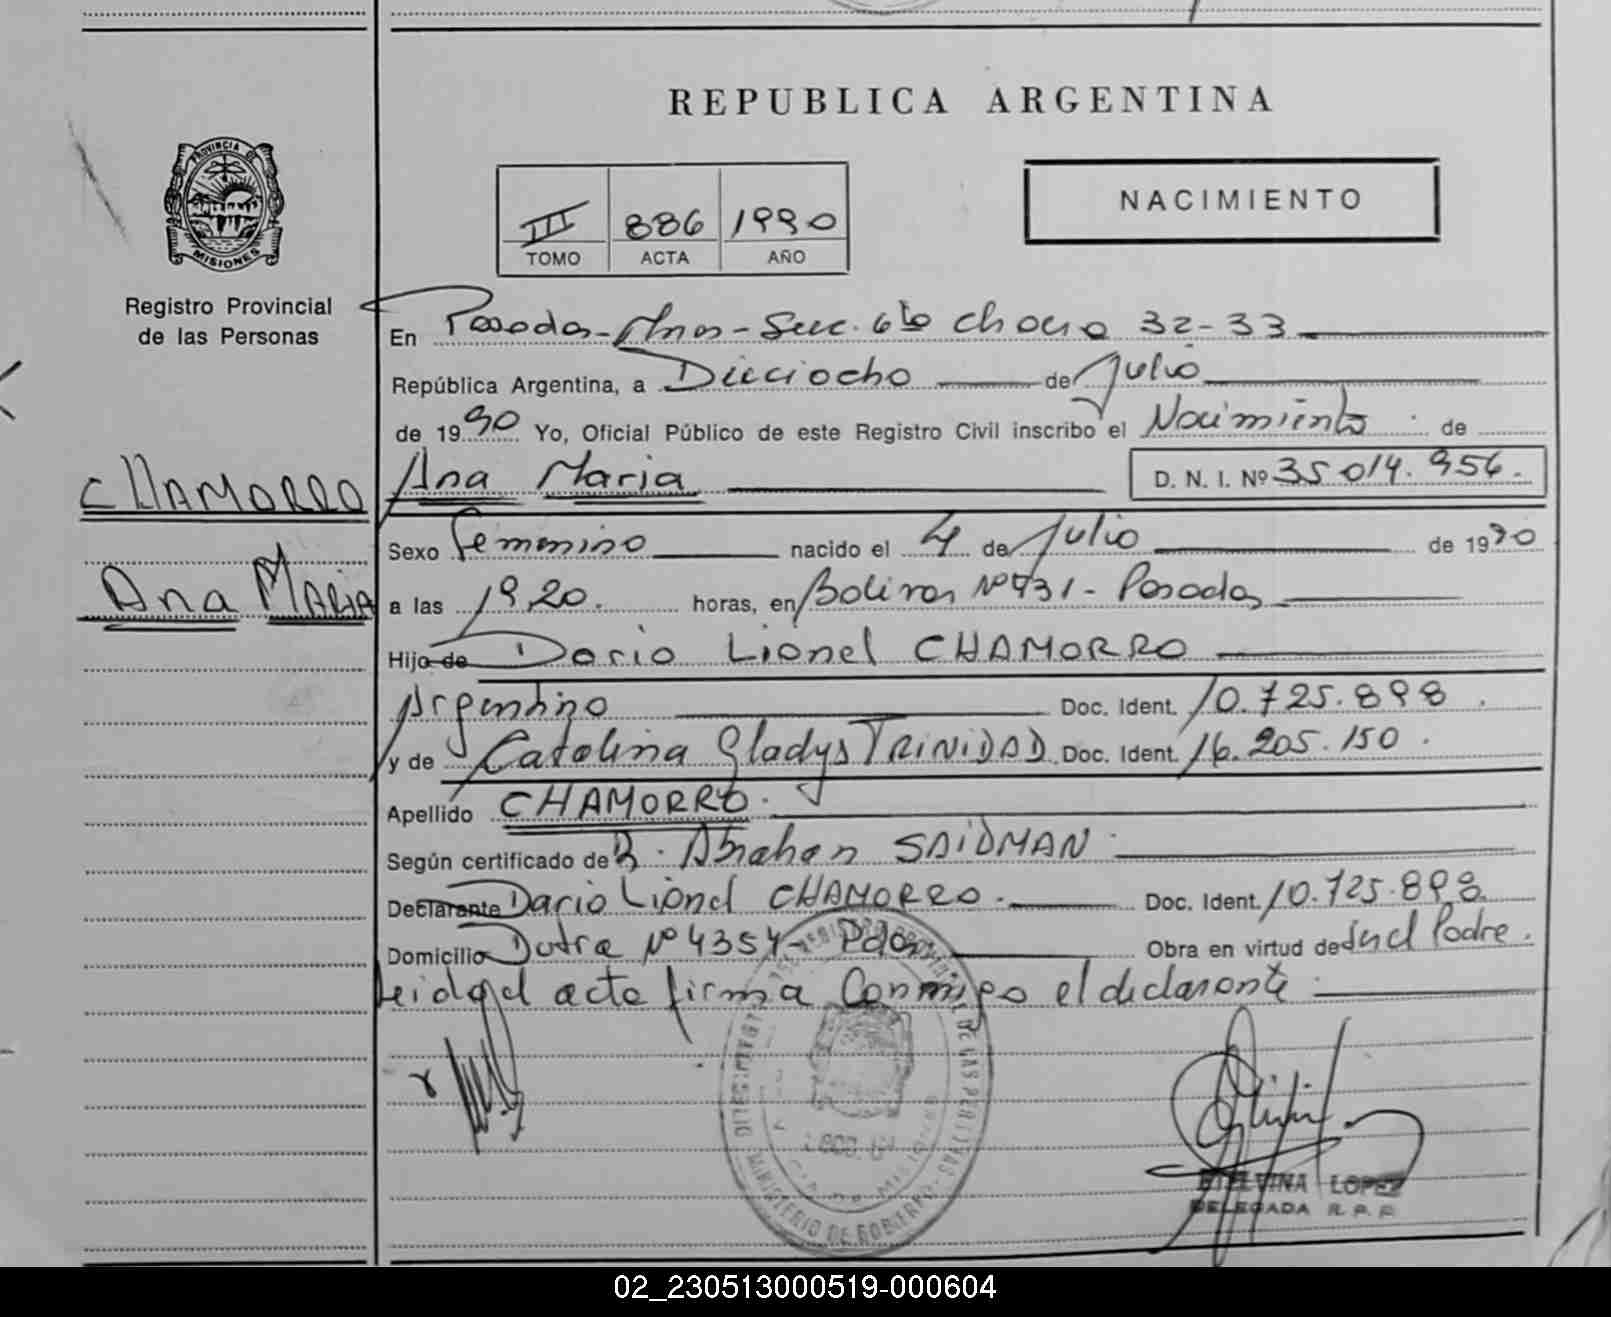 REPUBLICA ARGENTINA
PROVINCIA DE
MISIONES
Registro Provincial
de las Personas
III 886 1990
TOMO ACTA AÑO
NACIMIENTO
En Posadas - Mnes - Secc. 6ta chacra 32-33
República Argentina, a Dieciocho de Julio
de 1990 Yo, Oficial Público de este Registro Civil inscribo el Nacimiento de
CHAMORRO
Ana Maria
Ana Maria D. N. I. Nº 35.014.956.
Sexo Femenino nacido el 4 de Julio de 1990
a las 19,20. horas, en Bolivar Nº 431 - Posadas
Hijo de Dario Lionel CHAMORRO
Argentino Doc. Ident. 10.725.898.
y de Catalina Gladys TRINIDAD Doc. Ident. 16.205.150.
Apellido CHAMORRO.
Según certificado de Abrahan SAIDMAN
Declarante Dario Lionel CHAMORRO. Doc. Ident. 10.725.898
Domicilio Dutra Nº 4354 - Pdas. Obra en virtud de Ser el Padre.
Leida el acta firma Conmigo el declarante.
MINISTERIO DE GOBIERNO
ETELVINA LOPEZ
DELEGADA R. P. P.
02_230513000519-000604